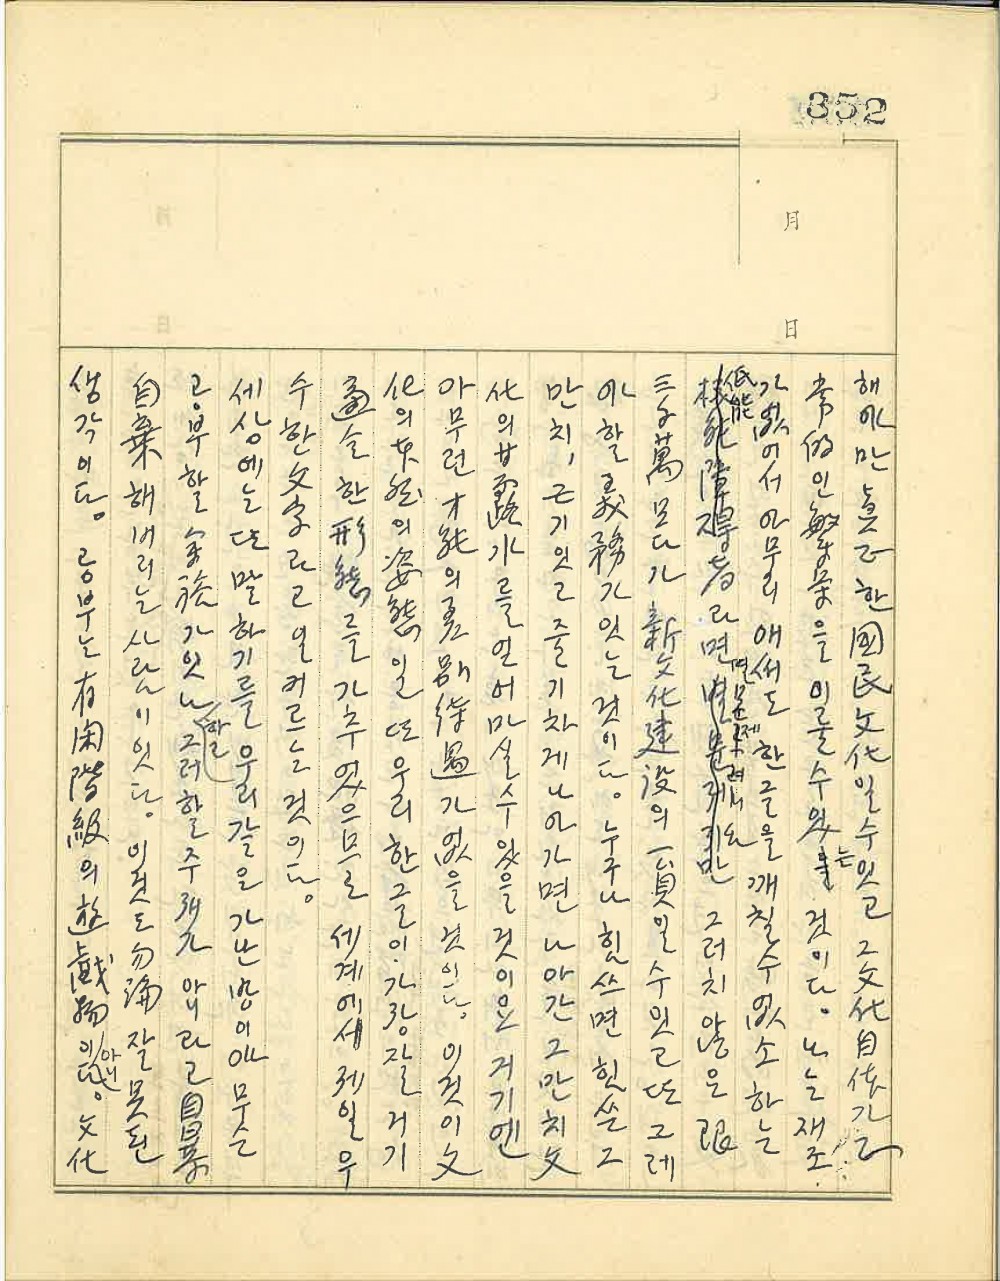 352
月
日
해야만 眞正한 國民文化일수잇고 그文化自体가 正
常的인 繁榮을 이룰수있는 것이다. 나는 재조
가없어서 아무리 애써도 한글을 깨칠수없소 하는
低能
者라면 별문제려니와 그러치않은 限
三千萬 모다가 新文化建設의 一員일수잇고 또 그레
야할 義務가 잇는 것이다. 누구나 힘쓰면 힘쓴 그
만치, 근기잇고 줄기차게 나아가면 나아간 그만치 文
化의 甘露水를 얻어마실수 있을 것이요 거기엔
아무런 才能의 差別待遇가 없을 것이다. 이것이 文
化의 本然의 姿態일 또 우리 한글이 가장 잘 거기
適合한 形態를 가추었으므로 세계에서 제일 우
수한 文字라고 일커르는 것이다.
세상에는 또 말하기를 우리같은 가난뱅이야 무슨
공부할 余裕가 잇나 그러할 주제가 아니라고 自暴
自棄해버리는 사람이 잇다. 이것도 勿論 잘못된
생각이다. 공부는 有閑階級의 遊戱物이 아니다. 文化